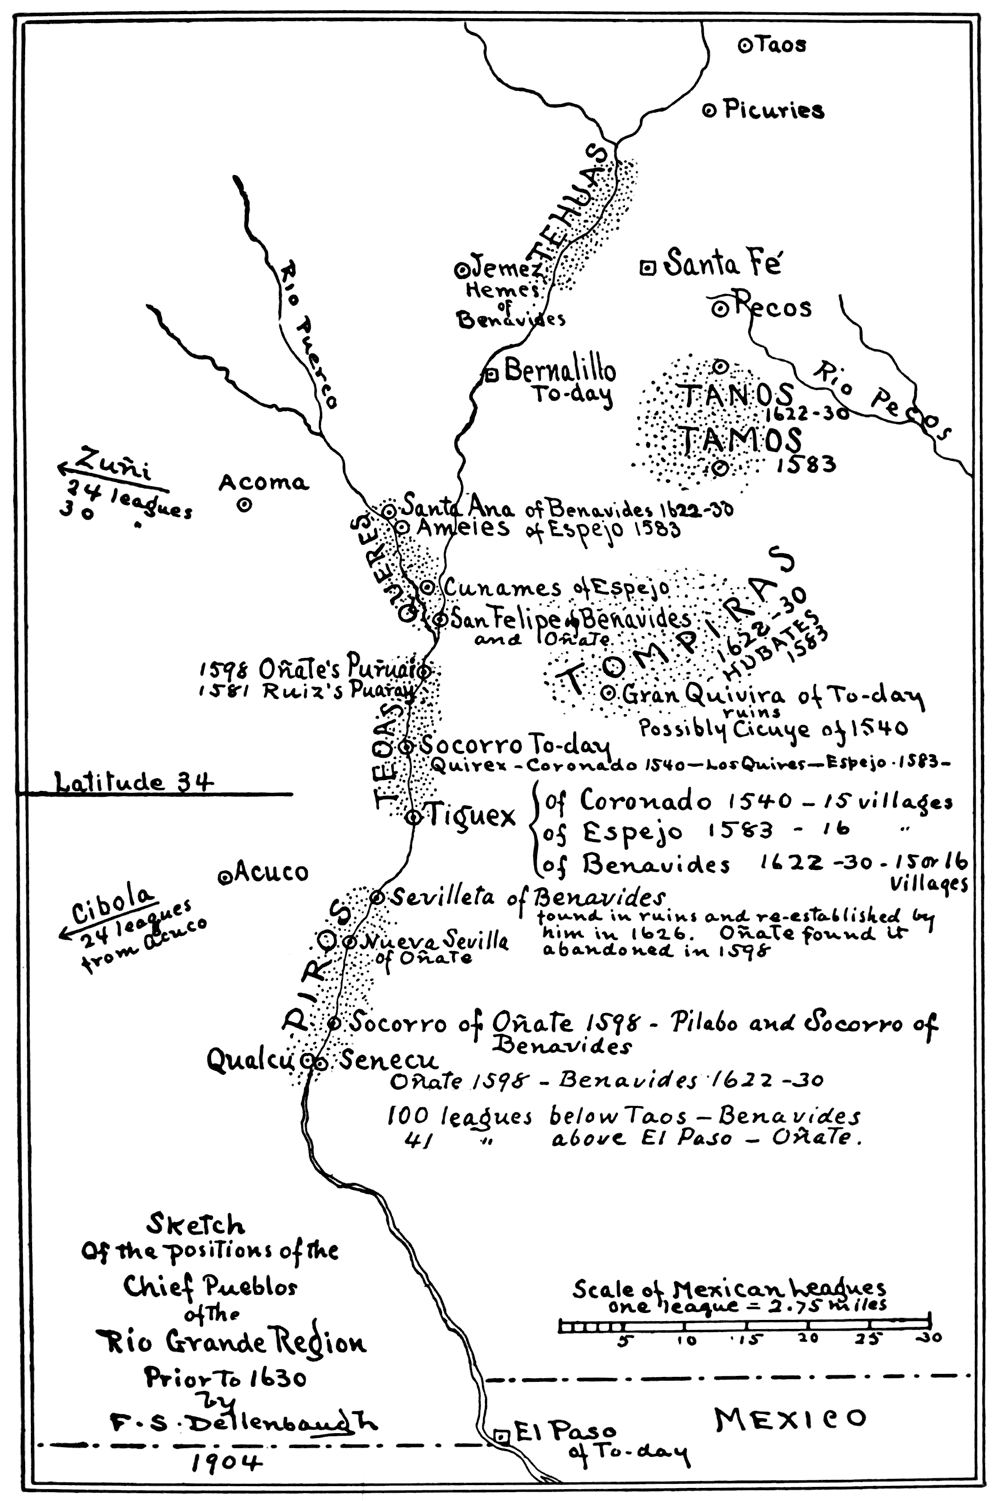 Taos
Picuries
TEHUAS
Jemez
Hemes
of
Benavides
Santa Fé
Pecos
Rio Puerco
Bernalillo
To-day
Rio Pecos
TANOS
1622-30
TAMOS
1583
Zuñi
24 leagues
30 "
Acoma
Santa Ana of Benavides 1622-30
Ameies of Espejo 1583
QUERES
Cunames of Espejo
San Felipe of Benavides
and Oñate
TOMPIRAS
1622-30
HUBATES
1583
1598 Oñate's Puruai
1581 Ruiz's Puaray
Gran Quivira of To-day
ruins
Possibly Cicuye of 1540
TEOAS
Socorro To-day
Quirex-Coronado 1540-Los Quires-Espejo-1583-
Latitude 34
Tiguex
of Coronado 1540 - 15 villages
of Espejo 1583 - 16 "
of Benavides 1622-30-15 or 16
villages
Acuco
Cibola
24 leagues
from Acuco
Sevilleta of Benavides
found in ruins and re-established by
him in 1626. Oñate found it
abandoned in 1598
PIROS
Nueva Sevilla
of Oñate
Socorro of Oñate 1598 - Pilabo and Socorro of
Benavides
Qualcu Senecu
Oñate 1598 - Benavides 1622-30
100 leagues below Taos - Benavides
41 " above El Paso - Oñate.
Sketch
Of the positions of the
Chief Pueblos
of the
Rio Grande Region
Prior To 1630
by
F.S. Dellenbaugh
1904
Scale of Mexican Leagues
one league = 2.75 miles
5 10 15 20 25 30
MEXICO
El Paso
of To-day